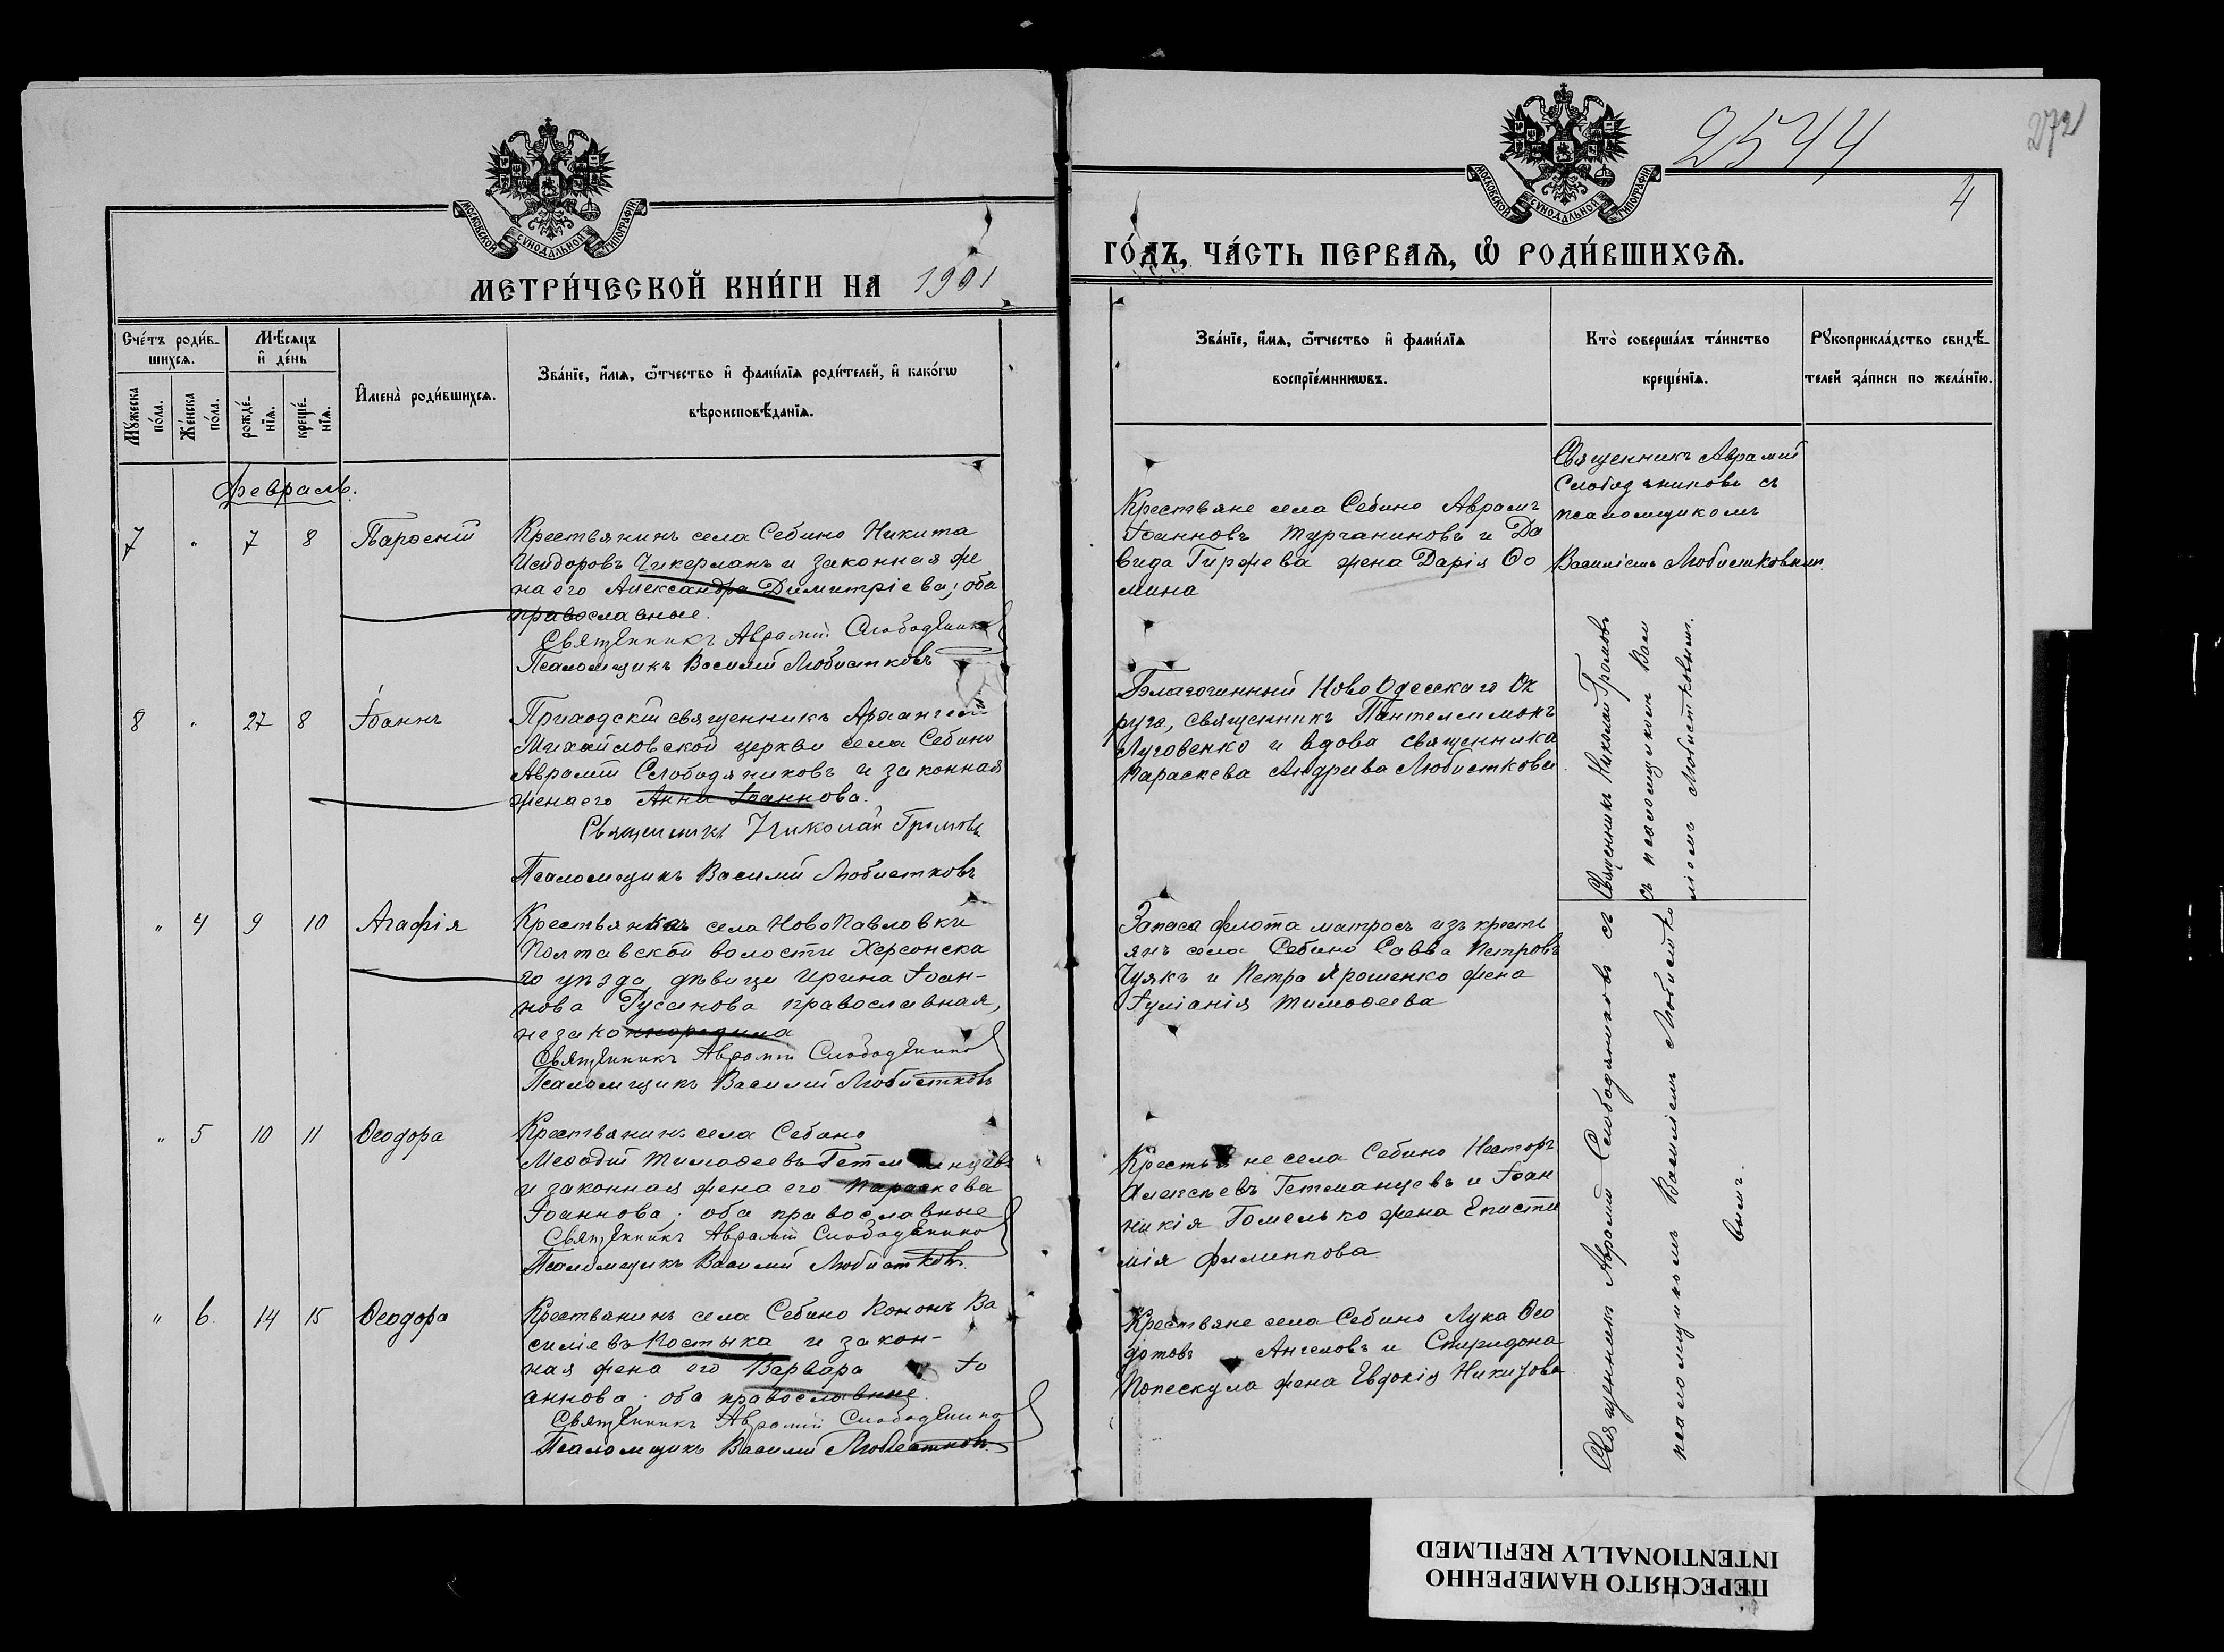 2544
272
4
МОСКОВСКОЙ СѴНОДАЛЬНОЙ ТИПОГРАФІИ
МОСКОВСКОЙ СѴНОДАЛЬНОЙ ТИПОГРАФІИ
МЕТРИ́ЧЕСКОЙ КНИ́ГИ НА 1901
ГО́ДЪ, ЧА́СТЬ ПЕРВАѦ, Ѡ РОДИ́ВШИХСѦ.
Сче́тъ роди́в-
шихсѧ.
Мꙋ́жеска
по́ла.
Же́нска
по́ла.
Мѣ́сѧцъ
и҆ де́нь
рожде́-
нїѧ.
креще́-
нїѧ.
И҆мена̀ роди́вшихсѧ.
Зва́нїе, и҆́мѧ, ѻ҆́тчество и҆ фами́лїѧ роди́телей, и҆ како́гѡ
вѣроисповѣ́данїѧ.
Зва́нїе, и҆́мѧ, ѻ҆́тчество и҆ фами́лїѧ
воспрїе́мникѡвъ.
Кто̀ соверша́лъ та́инство
креще́нїѧ.
Рꙋкоприкла́дство свидѣ́-
телей за́писи по жела́нїю.
Февраль.
7 " 7 8 Парѳеній
Крестьянинъ села Себино Никита
Исидоровъ Чикерманъ и законная же
на его Александра Димитріева; оба
православные.
Священникъ Аврамій Слободяник
Псаломщикъ Василій Любистковъ
Крестьяне села Себино Аврамъ
Іоанновъ Турчаниновъ и Да
вида Гиржева жена Дарія Ѳо
мина
Священникъ Аврамій
Слободяниковъ съ
псаломщикомъ
Василіемъ Любистковым
8 " 27 8 Іоаннъ
Приходскій священникъ Архангело
Михайловской церкви села Себино
Аврамій Слободяниковъ и законная
жена его Анна Іоаннова.
Священникъ Николай Громовъ
Псаломщикъ Василій Любистковъ
Благочинный НовоОдесскаго Ок
руга, священникъ Пантелеимонъ
Луговенко и вдова священника
Параскева Андреева Любисткова
Священникъ Николай Громовъ
съ псаломщикомъ Васи
ліемъ Любистковымъ.
" 4 9 10 Агафія
Крестьянка села НовоПавловки
Полтавской волости Херсонска
го уѣзда дѣвица Ирина Іоан-
нова Русанова православная,
незаконнородила
Священникъ Аврамій Слободянико
Псаломщикъ Василій Любистковъ
Запаса флота матросъ изъ кресть
янъ села Себино Савва Петровъ
Чуякъ и Петра Ярошенко жена
Іуліанія Тимоѳеева
" 5 10 11 Ѳеодора
Крестьянинъ села Себино
Меѳодій Тимоѳеевъ Гетманцевъ
и законная жена его Параскева
Іоаннова; оба православные
Священникъ Аврамій Слободянико
Псаломщикъ Василій Любистковъ.
Крестьяне села Себино Несторъ
Алексѣевъ Гетманцевъ и Іоан
никія Гомелько жена Еписти
мія Филиппова
" 6. 14 15 Ѳеодора
Крестьянинъ села Себино Кононъ Ва
силіевъ Костыка и закон-
ная жена его Варвара Іо
аннова; оба православные.
Священникъ Аврамій Слободянико
Псаломщикъ Василій Любистковъ.
Крестьяне села Себино Лука Ѳео
дотовъ Ангеловъ и Спиридона
Попескула жена Евдокія Никитова
Священникъ Аврамій Слободяниковъ съ
псаломщикомъ Василіемъ Любистко
вымъ.
ПЕРЕСНЯТО НАМЕРЕННО
INTENTIONALLY REFILMED